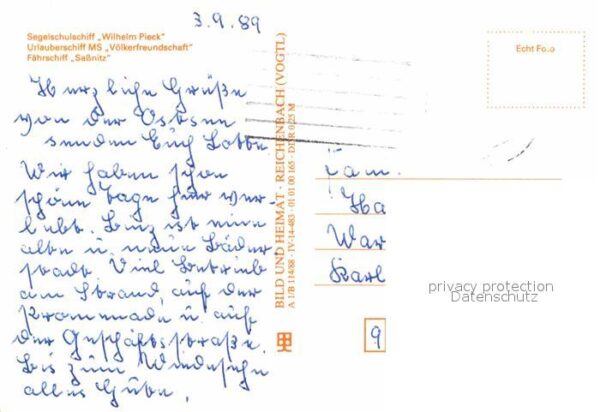 3.9.89
Segelschulschiff „Wilhelm Pieck"
Urlauberschiff MS „Völkerfreundschaft"
Fährschiff „Saßnitz"
Herzliche Grüße
von der Ostsee
senden Euch Lotte
Wir haben schon
schöne Tage hier ver-
lebt. Binz ist eine
alte u. neue Bäder
stadt. Viel Betrieb
am Strand, auf der
Promenade u. auf
der Geschäftsstraße.
Bis zum Wiedersehn
alles Gute.
BILD UND HEIMAT · REICHENBACH (VOGTL)
A 1/B 114/88 · IV-14-483 · 01 01 00 165 · DDR 0,25 M
Echt Foto
Fam.
Ha
War
Karl
9
privacy protection
Datenschutz